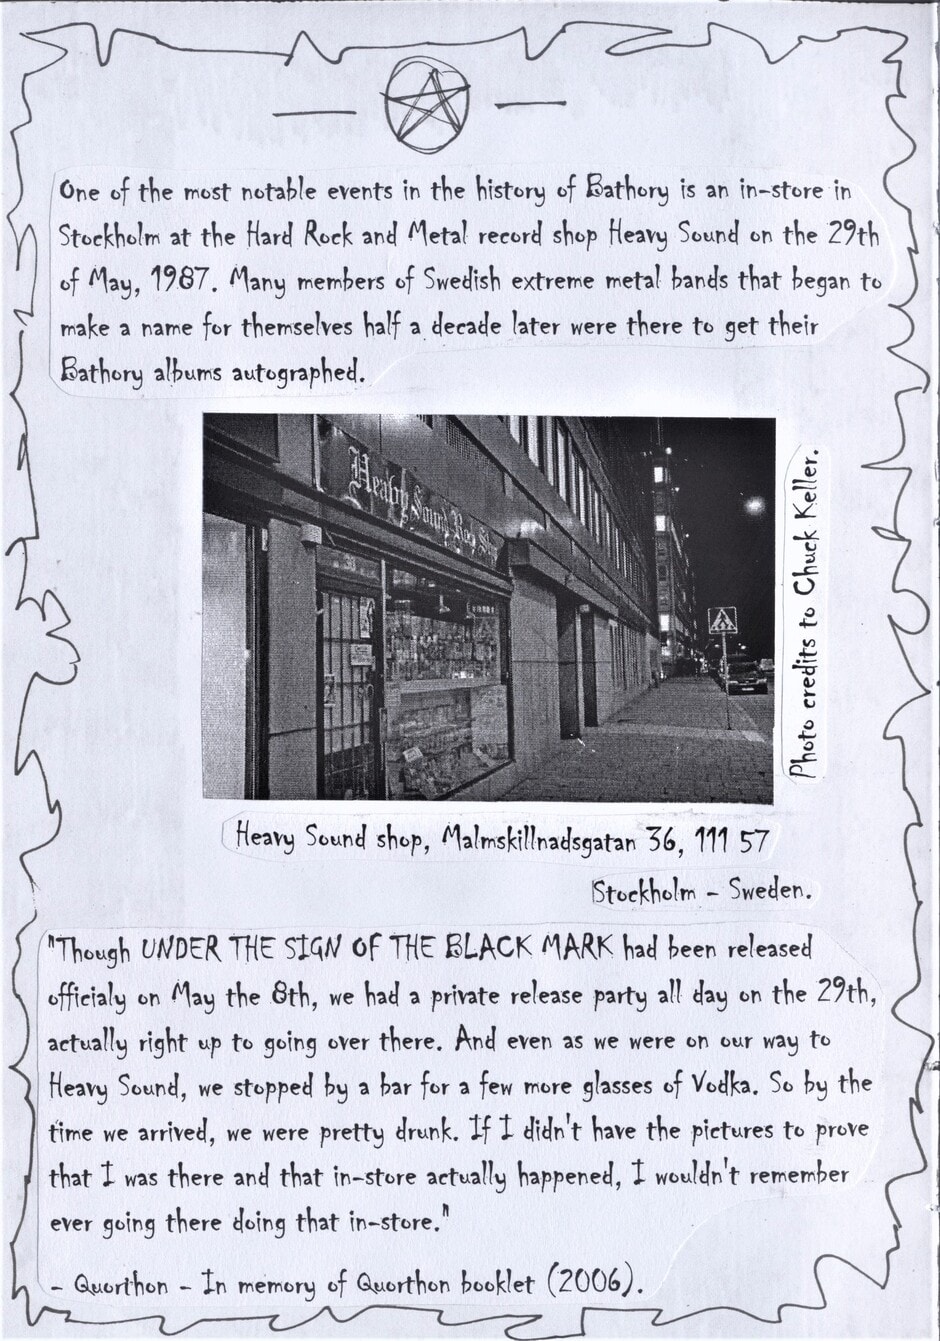 One of the most notable events in the history of Bathory is an in-store in
Stockholm at the Hard Rock and Metal record shop Heavy Sound on the 29th
of May, 1987. Many members of Swedish extreme metal bands that began to
make a name for themselves half a decade later were there to get their
Bathory albums autographed.
Heavy Sound Rock Shop
Photo credits to Chuck Keller.
Heavy Sound shop, Malmskillnadsgatan 36, 111 57
Stockholm - Sweden.
"Though UNDER THE SIGN OF THE BLACK MARK had been released
officialy on May the 8th, we had a private release party all day on the 29th,
actually right up to going over there. And even as we were on our way to
Heavy Sound, we stopped by a bar for a few more glasses of Vodka. So by the
time we arrived, we were pretty drunk. If I didn't have the pictures to prove
that I was there and that in-store actually happened, I wouldn't remember
ever going there doing that in-store."
- Quorthon - In memory of Quorthon booklet (2006).